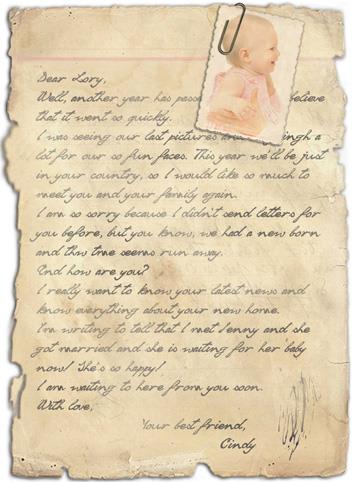 Dear Lory,
Well, another year has pass believe
that it went so quickly.
I was seeing our last pictures and ingh a
lot for our so fun faces. This year we'll be just
in your country, so I would like so much to
meet you and your family again.
I am so sorry because I didn't send letters for
you before, but you know, we had a new born
and the time seems run away.
And how are you?
I really want to know your latest news and
know everything about your new home.
I'm writing to tell that I met Jenny and she
got married and she is waiting for her baby
now! She's so happy!
I am waiting to here from you soon.
With love,
Your best friend,
Cindy